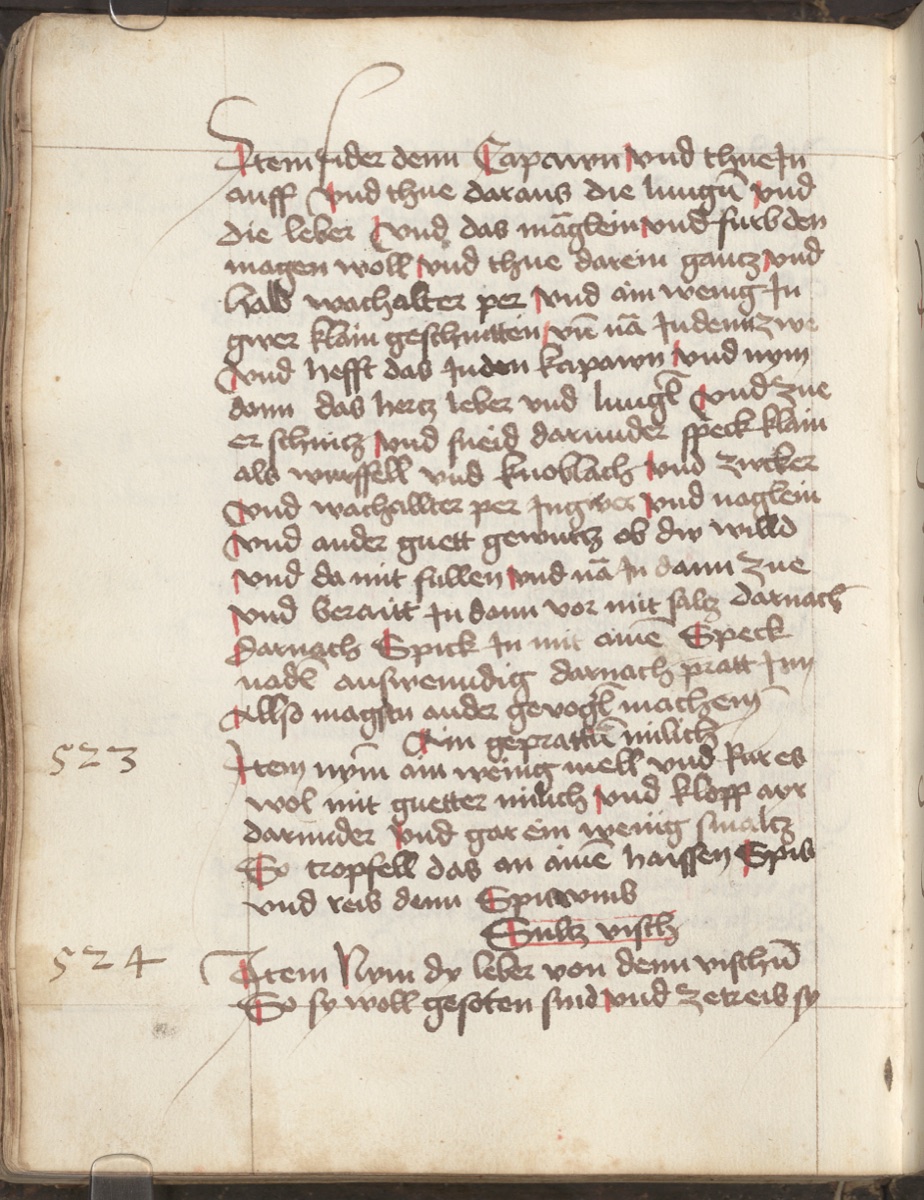 Item sider denn Capawn vnd thue In
auff vnd thue daraus die lungn̄ vnd
die leber vnd das mäglein vnd furb den
magen woll vnd thue darein gantz vnd
halb wachalter per vnd ain wenig In
gwer klain geschnitten vn̄ nā In denn zwe
vnd hefft das In den kapawn vnd nym
dann das hertz leber vnd lungl vnd zue
er schnitz vnd sneid darunder speck klain
als wurffell vnd knoblach vnd zucker
vnd wachallter per Ingwer vnd naglein
vnd ander guett gewurtz ob dw willd
vnd da mit fullen vnd nā In dann zue
vnd beraitt In dann vor mit saltz darnach
darnach Spick In mit aimē Speck
nadl auswenndig darnach pratt Inn
Allso magstu ander gevogl machem
Ain geprattn̄ milich
523 Item nym̄ ain wenig mell vnd Rur es
wol mit guetter milich vnd kloff ayr
darunder vnd gar ein wenig smaltz
So tropfell das an aimē haissen Spis
vnd reib denn Spis vmb
Sultz visch
524 Item Nym dy leber von denn vischn̄
So sy woll gesoten sind vnd zetreib sy